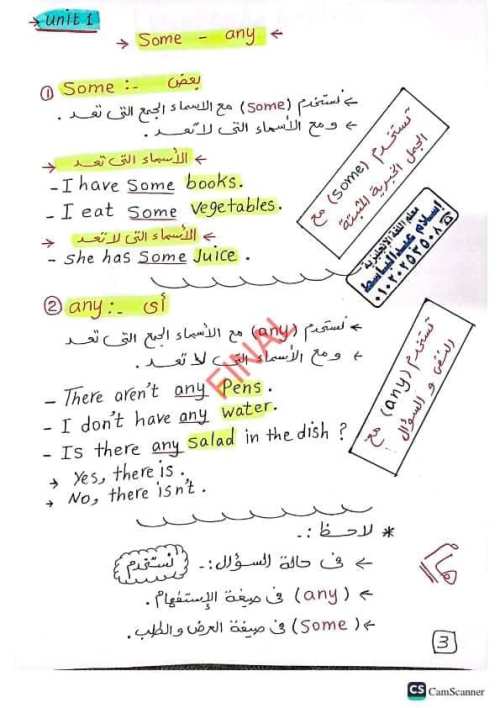 → unit 1
→ Some - any ←
① Some :- بعض
← نستخدم (Some) مع الاسماء الجمع التى تعد .
← و مع الأسماء التى لا تعد .
تستخدم (Some) مع
الجمل الخبرية المثبتة
→ الأسماء التى تعد ←
- I have Some books.
- I eat Some vegetables.
→ الأسماء التى لا تعد ←
- she has Some Juice .
معلم اللغة الانجليزية
اسلام عبدالباسط
٠١٠٢٠٢٥٣٥٠٨
② any :- أى
← نستخدم (any) مع الأسماء الجمع التى تعد
← و مع الأسماء التى لا تعد .
تستخدم (any) مع
النفى و السؤال
FINAL
- There aren't any Pens .
- I don't have any water.
- Is there any salad in the dish ?
→ Yes, there is .
→ No, there isn't .
* لاحظ :-
← فى حالة السؤال :- نستخدم
← (any) فى صيغة الإستفهام .
← (Some) فى صيغة العرض والطلب .
3
CS CamScanner